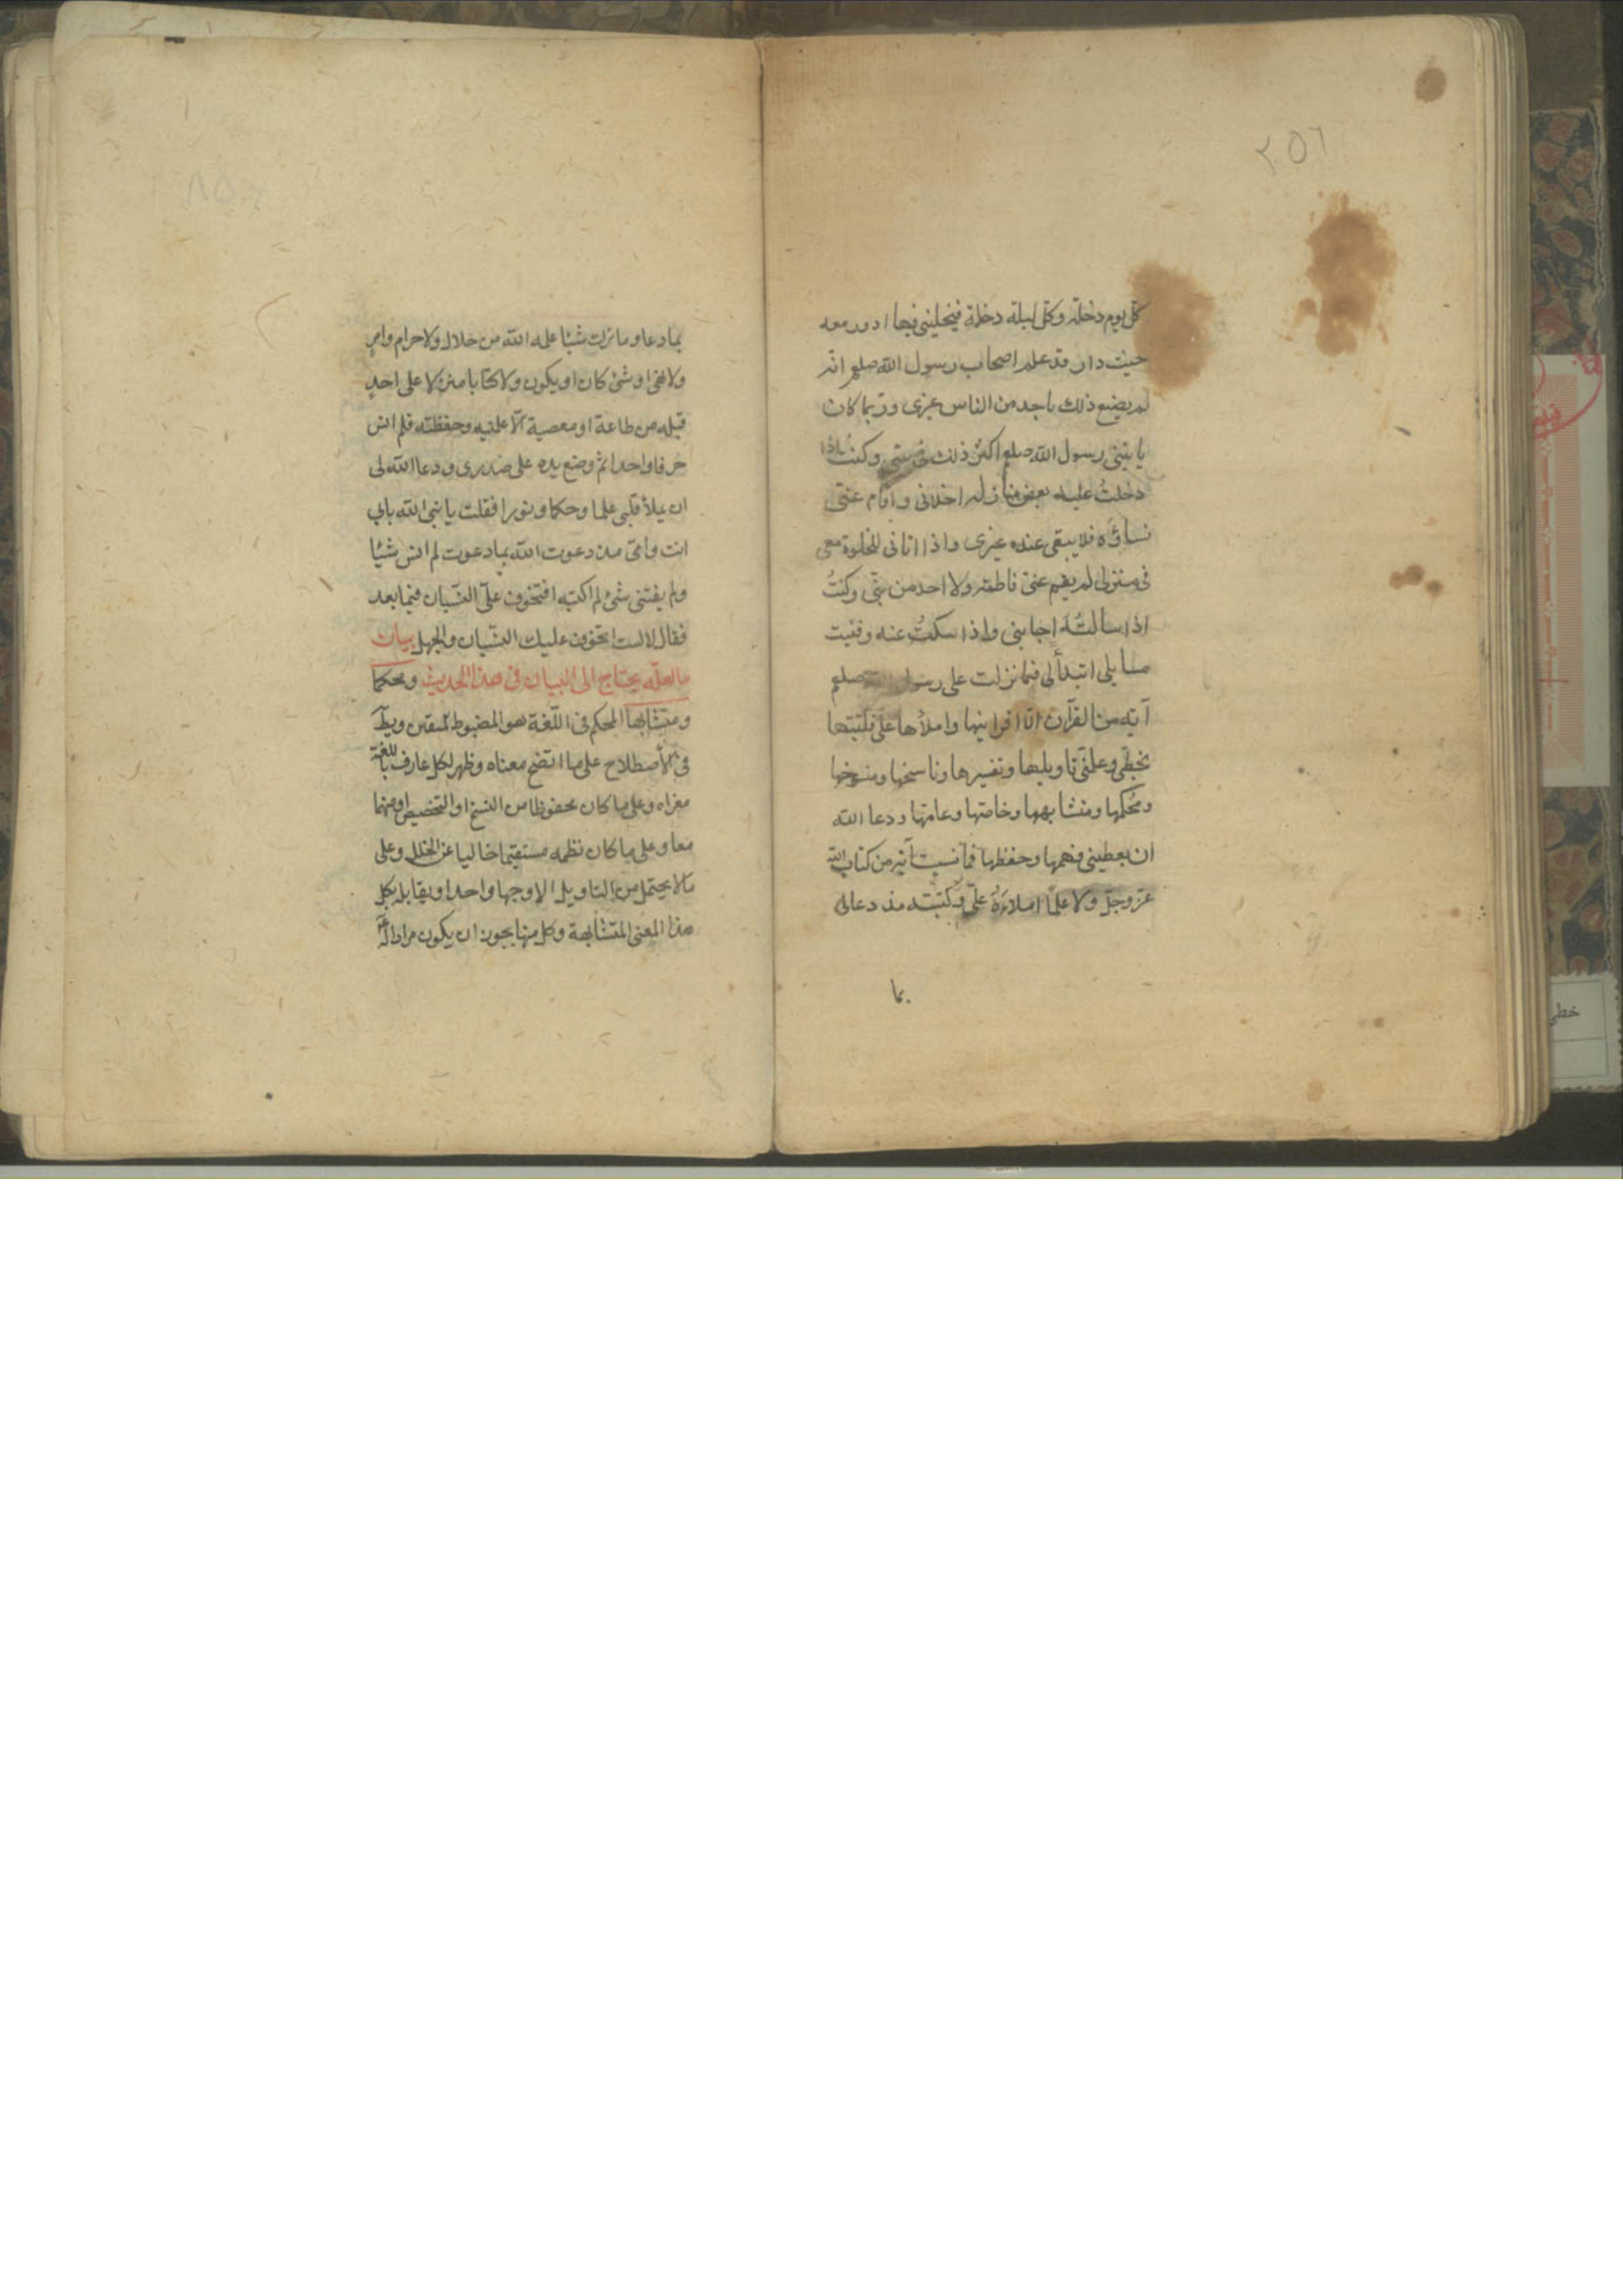 ٢٥٦
كل يوم دخلة وكل ليلة دخلة فيخليني فيها ادور معه
حيث دار وقد علم اصحاب رسول الله صلعم انه
لم يصنع ذلك باحد من الناس غيرى وربما كان
ياتينى رسول الله صلعم اكثر ذلك فى بيتى وكنتُ اذا
دخلتُ عليه بعض منازله اخلانى واقام عنى
نساؤه فلا يبقى عنده غيرى واذا اتانى للخلوة معى
فى منزلى لم يقم عنى فاطمة ولا احد من بنىّ وكنتُ
اذا سألتُهُ اجابنى واذا سكتُّ عنه وفنيت
مسايلى ابتدأنى فما نزلت على رسول الله صلعم
آية من القرآن الا اقرأنيها واملأها علىّ فكتبتها
بخطى وعلّمنى تاويلها وتفسيرها وناسخها ومنسوخها
ومُحكمها ومتشابهها وخاصّها وعامّها ودعا الله
ان يعطينى فهمها وحفظها فما نسيت آية من كتاب الله
عز وجل ولا علمًا املاءَهُ علىّ وكتبته منذ دعا لى
بما
بما دعا وما ترك شيئا علمه الله من حلال ولا حرام وامرٍ
ولا نهى او شئ كان او يكون ولا كتاب منزل على احدٍ
قبله من طاعة او معصية الّا علمنيه وحفظته فلم انس
حرفا واحدا ثم وضع يده على صدرى ودعا الله لى
ان يملأ قلبى علما وحكما ونورا فقلت يا نبى الله بابى
انت وامى منذ دعوت الله بما دعوت لم انس شيئا
ولم يفتنى شئ لم اكتبه افتتخوف علىّ النسيان فيما بعد
فقال لا لست اتخوف عليك النسيان والجهل بيان
ما لعله يحتاج الى البيان فى هذا الحديث ومحكما
ومتشابها المحكم فى اللّغة هو المضبوط المتقن ويطلق
فى الأصطلاح على ما اتضح معناه وظهر لكل عارف باللغة
مغزاه وعلى ما كان محفوظا من النسخ او التخصيص او منهما
معا وعلى ما كان نظمه مستقيما خاليا عن الخلل وعلى
ما لا يحتمل من التاويل الا وجها واحدا ويقابله بكل
هذا المعنى المتشابهة وكل منها يجوز ان يكون مرادا له